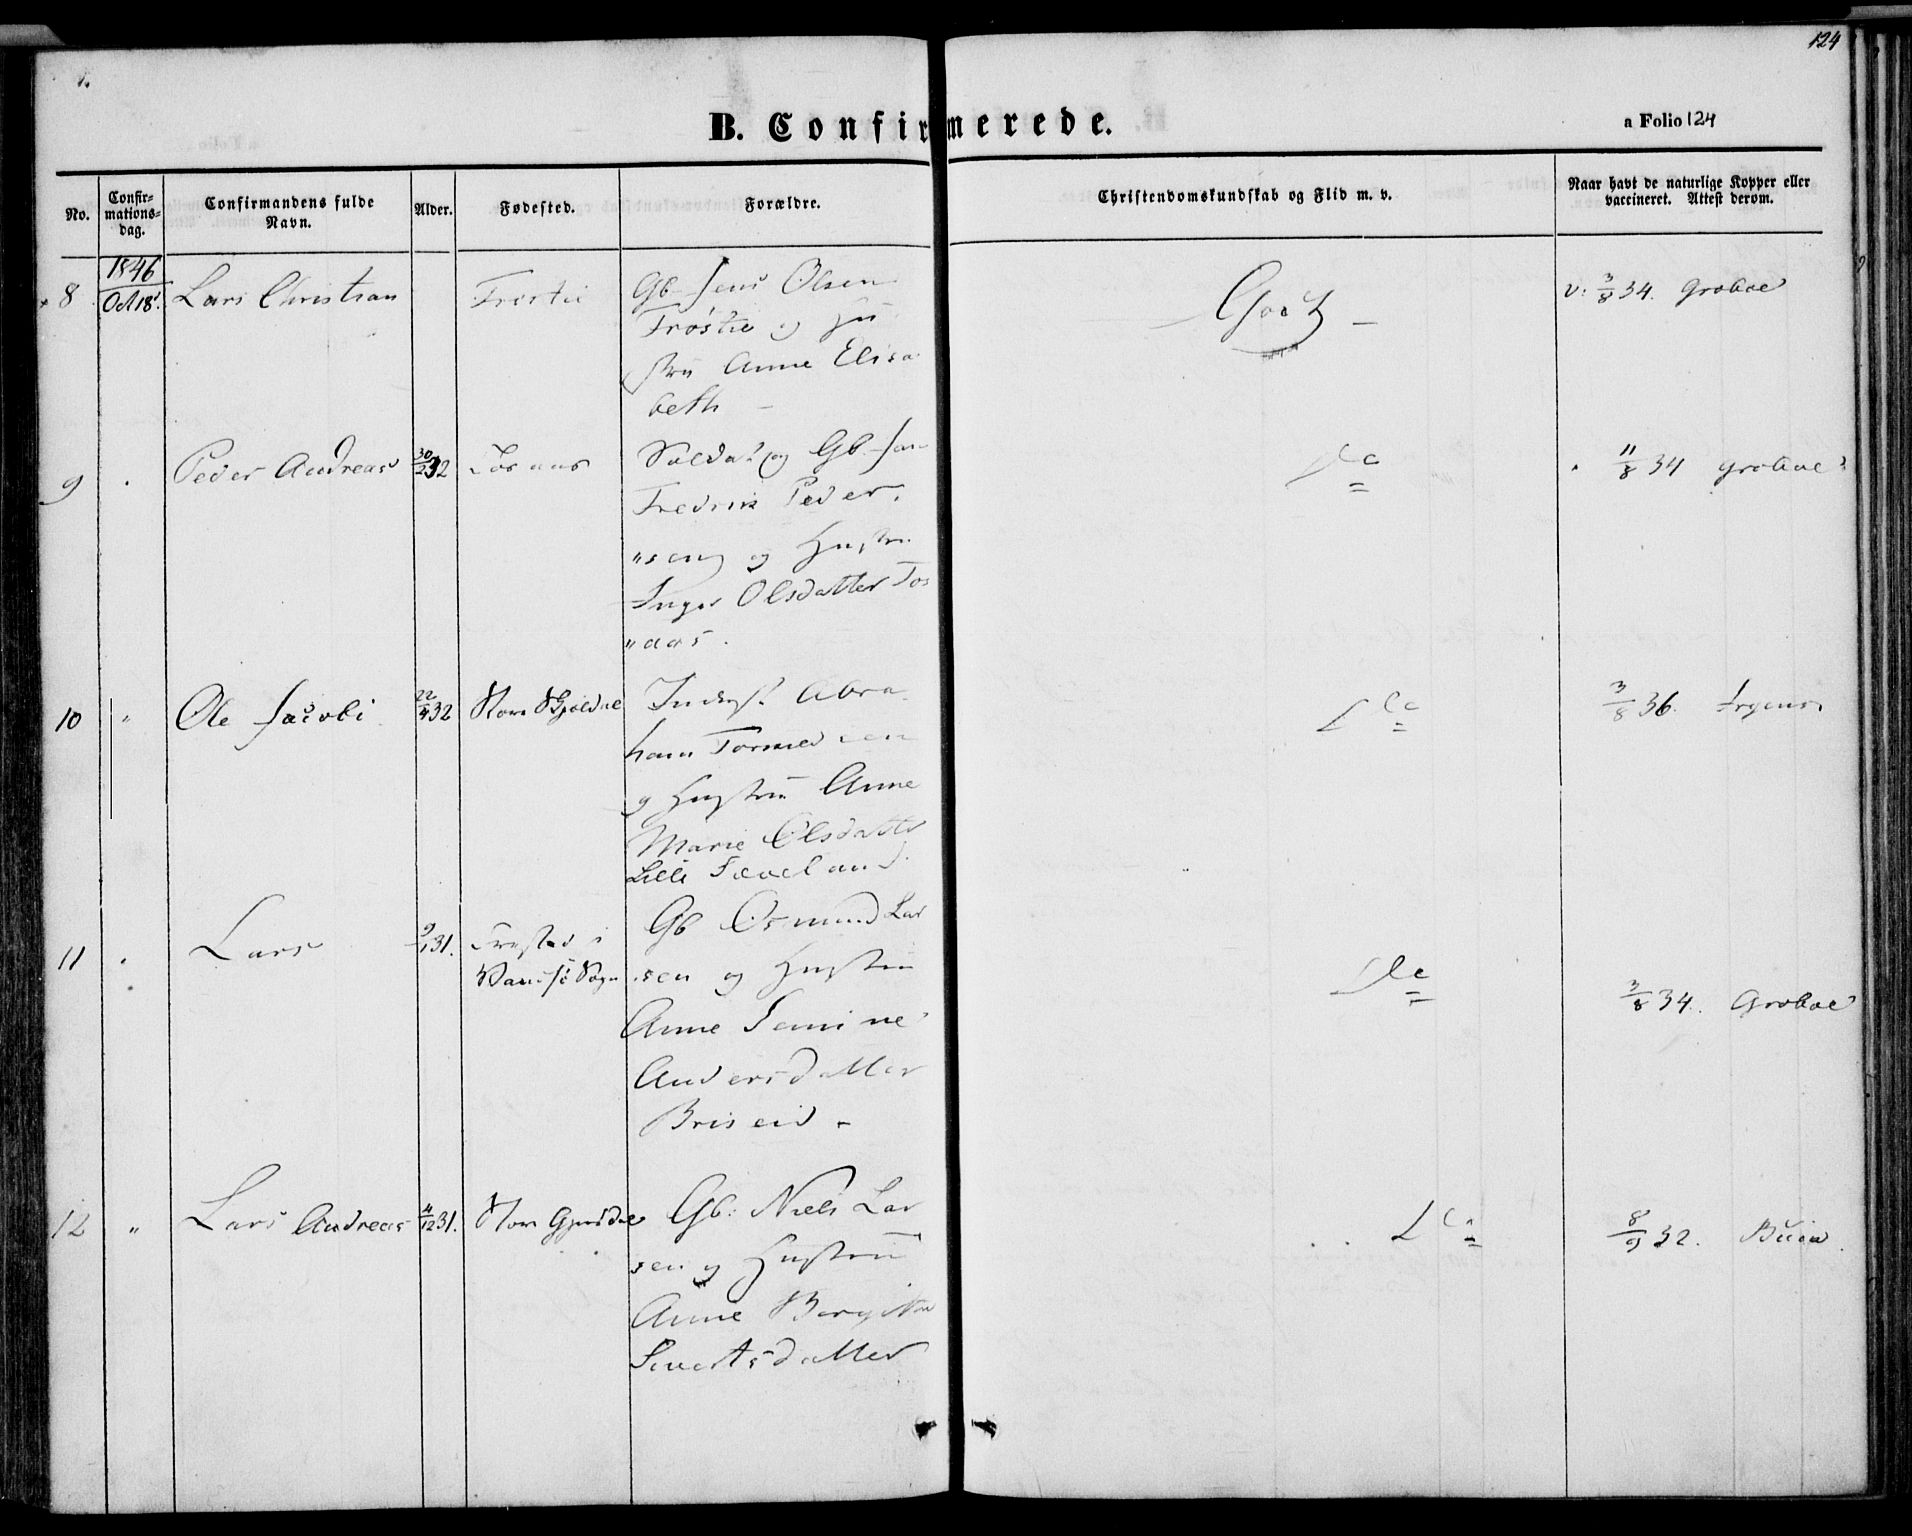 124
B. Confirmerede.
a Folio 124
No.
Confir-
mations-
dag.
Confirmandens fulde
Navn.
Alder.
Fødested.
Forældre.
Christendomskundskab og Flid m. v.
Naar havt de naturlige Kopper eller
vaccineret. Attest derom.
1846
8 Oct 18. Lars Christian
Gb Jens Olsen
Trøstie og Hu
stru Anne Elisa
beth –
Godt –
v: 3/8 34. Groboe
9 Peder Andreas 32
Soldat og Gb Jan
Fredrik Peder
"sen og Hustru
Inger Olsdatter Tos
"aas.
11/8 34 Groboe
10 " Ole Jacobi 22/4 32
Inderst. Abra
ham
og Hustru Anne
Marie Olsdatter
Lille
3/8 36.
11 Lars 31.
i
Vansø Sogn
Gb Osmund Lar
sen og Hustru
Anne Semine
Andersdatter
Briseid –
3/8 34. Groboe
12 " Lars Andreas 4/12 31. Store
Gb: Niels Lar
sen og Hustru
Anne Bergitte
Sivertsdatter
8/9 32.